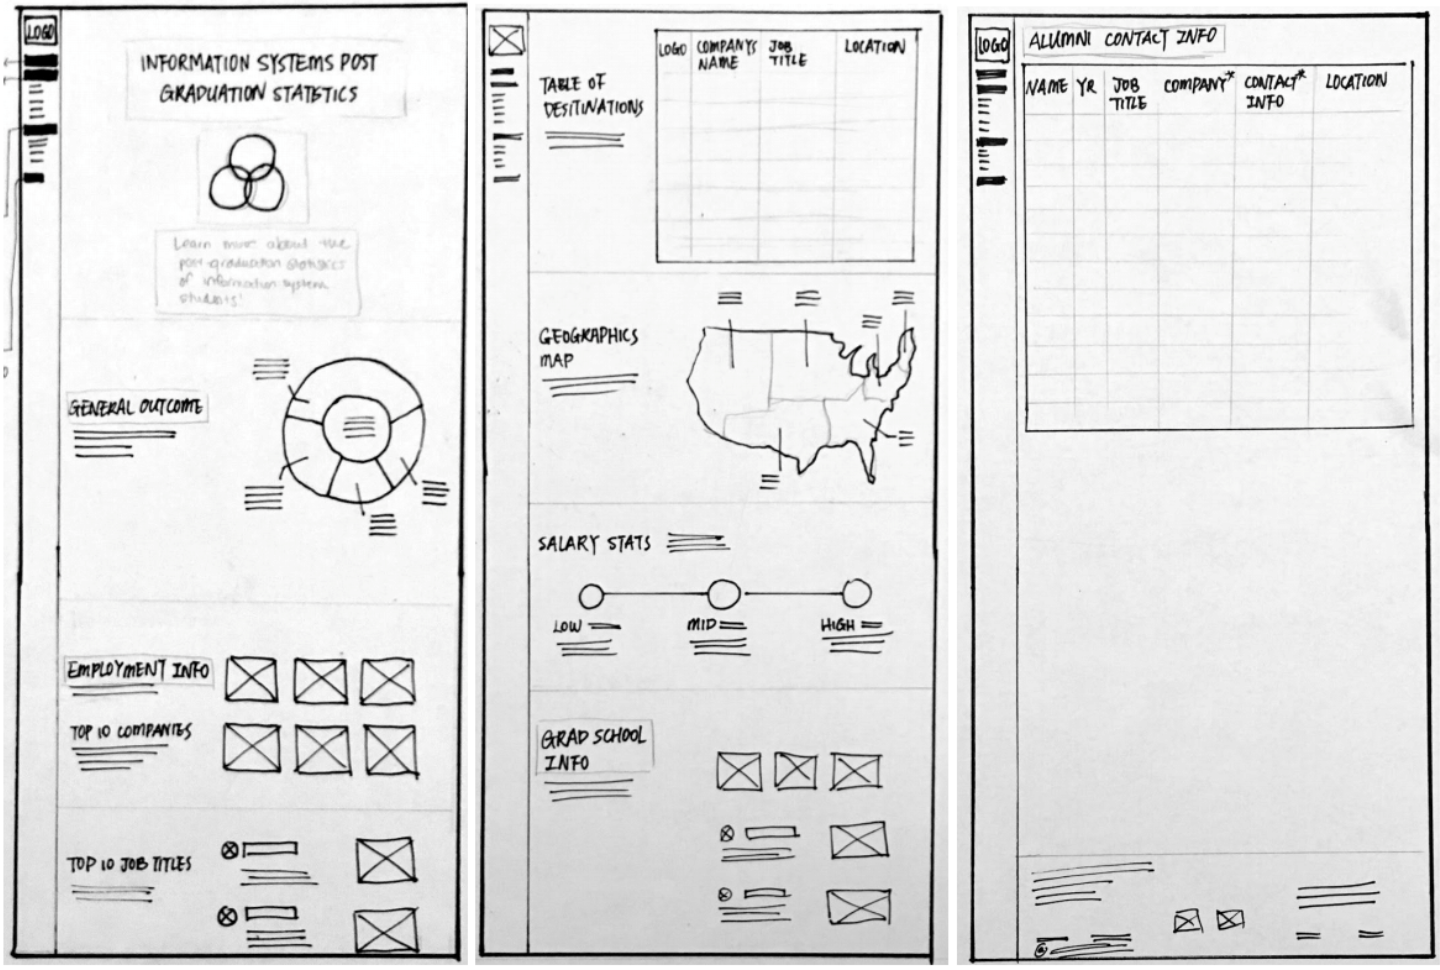 LOGO
INFORMATION SYSTEMS POST
GRADUATION STATISTICS
Learn more about the
post-graduation statistics
of information system
students!
GENERAL OUTCOME
EMPLOYMENT INFO
TOP 10 COMPANIES
TOP 10 JOB TITLES
TABLE OF
DESITINATIONS
LOGO COMPANYS JOB LOCATION
NAME TITLE
GEOGRAPHICS
MAP
SALARY STATS
LOW MID HIGH
GRAD SCHOOL
INFO
LOGO
ALUMNI CONTACT INFO
NAME YR JOB COMPANY* CONTACT* LOCATION
TITLE INFO